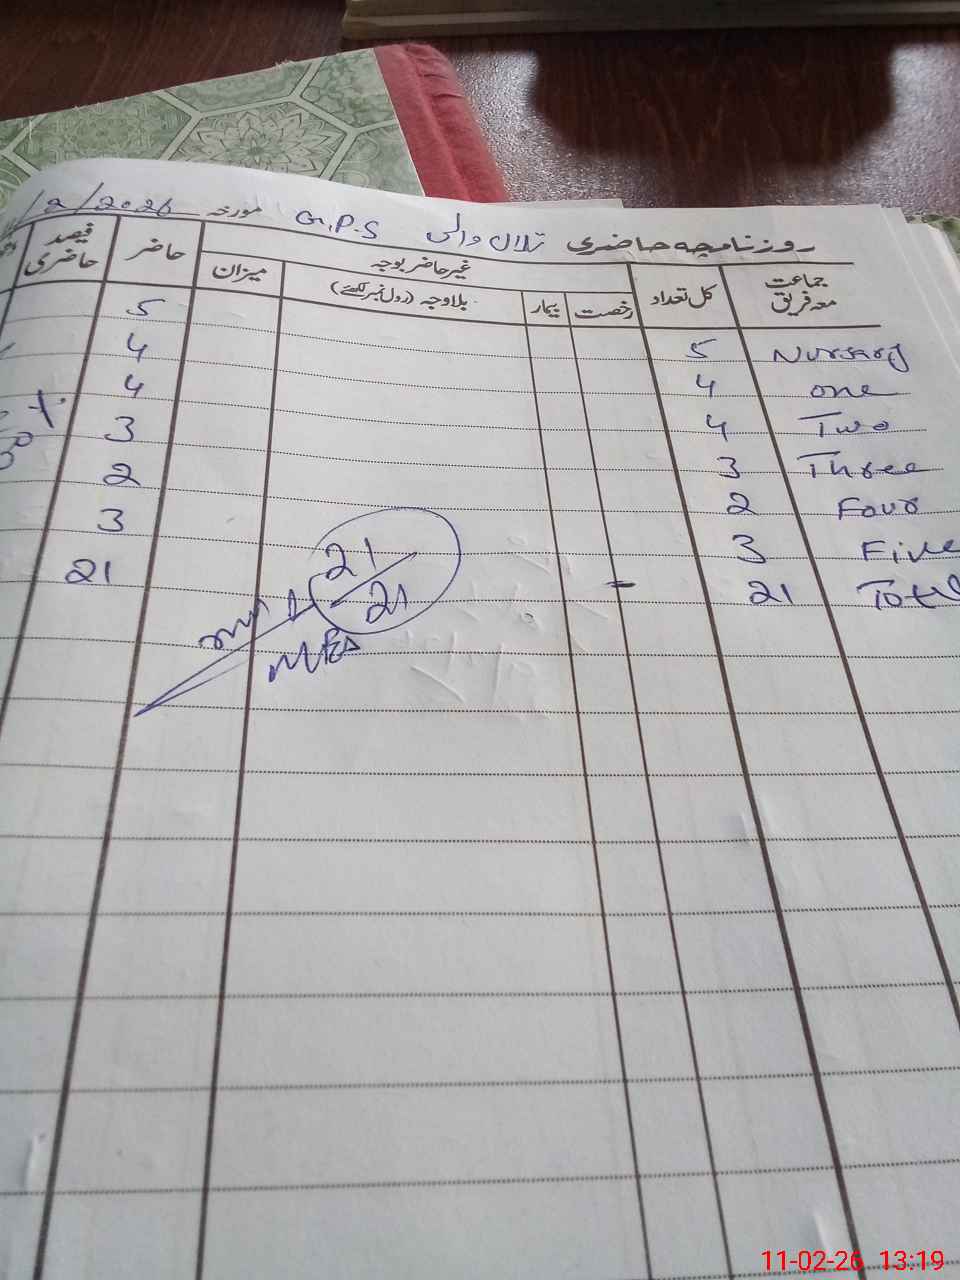 روزنامچہ حاضری تلال والی G.P.S مورخہ /2/2026
جماعت معہ فریق کل تعداد غیر حاضر بوجہ حاضر فیصد حاضری
رخصت بیمار بلاوجہ (رول نمبر لکھئے) میزان
Nursary 5 5
one 4 4
Two 4 4
Three 3 3
Four 2 2
Five 3 3
Total 21 - 21
21
21
MEA
11-02-26 13:19